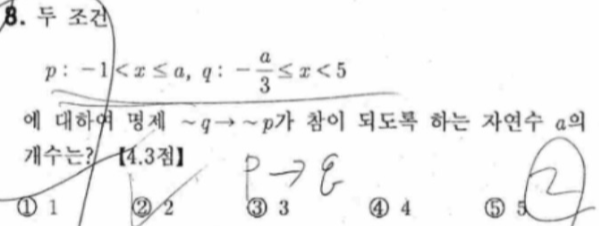 8. 두 조건
p : -1 < x ≤ a, q : -a/3 ≤ x < 5
에 대하여 명제 ~q → ~p가 참이 되도록 하는 자연수 a의
개수는? 【4.3점】
p → q
① 1 ② 2 ③ 3 ④ 4 ⑤ 5
2